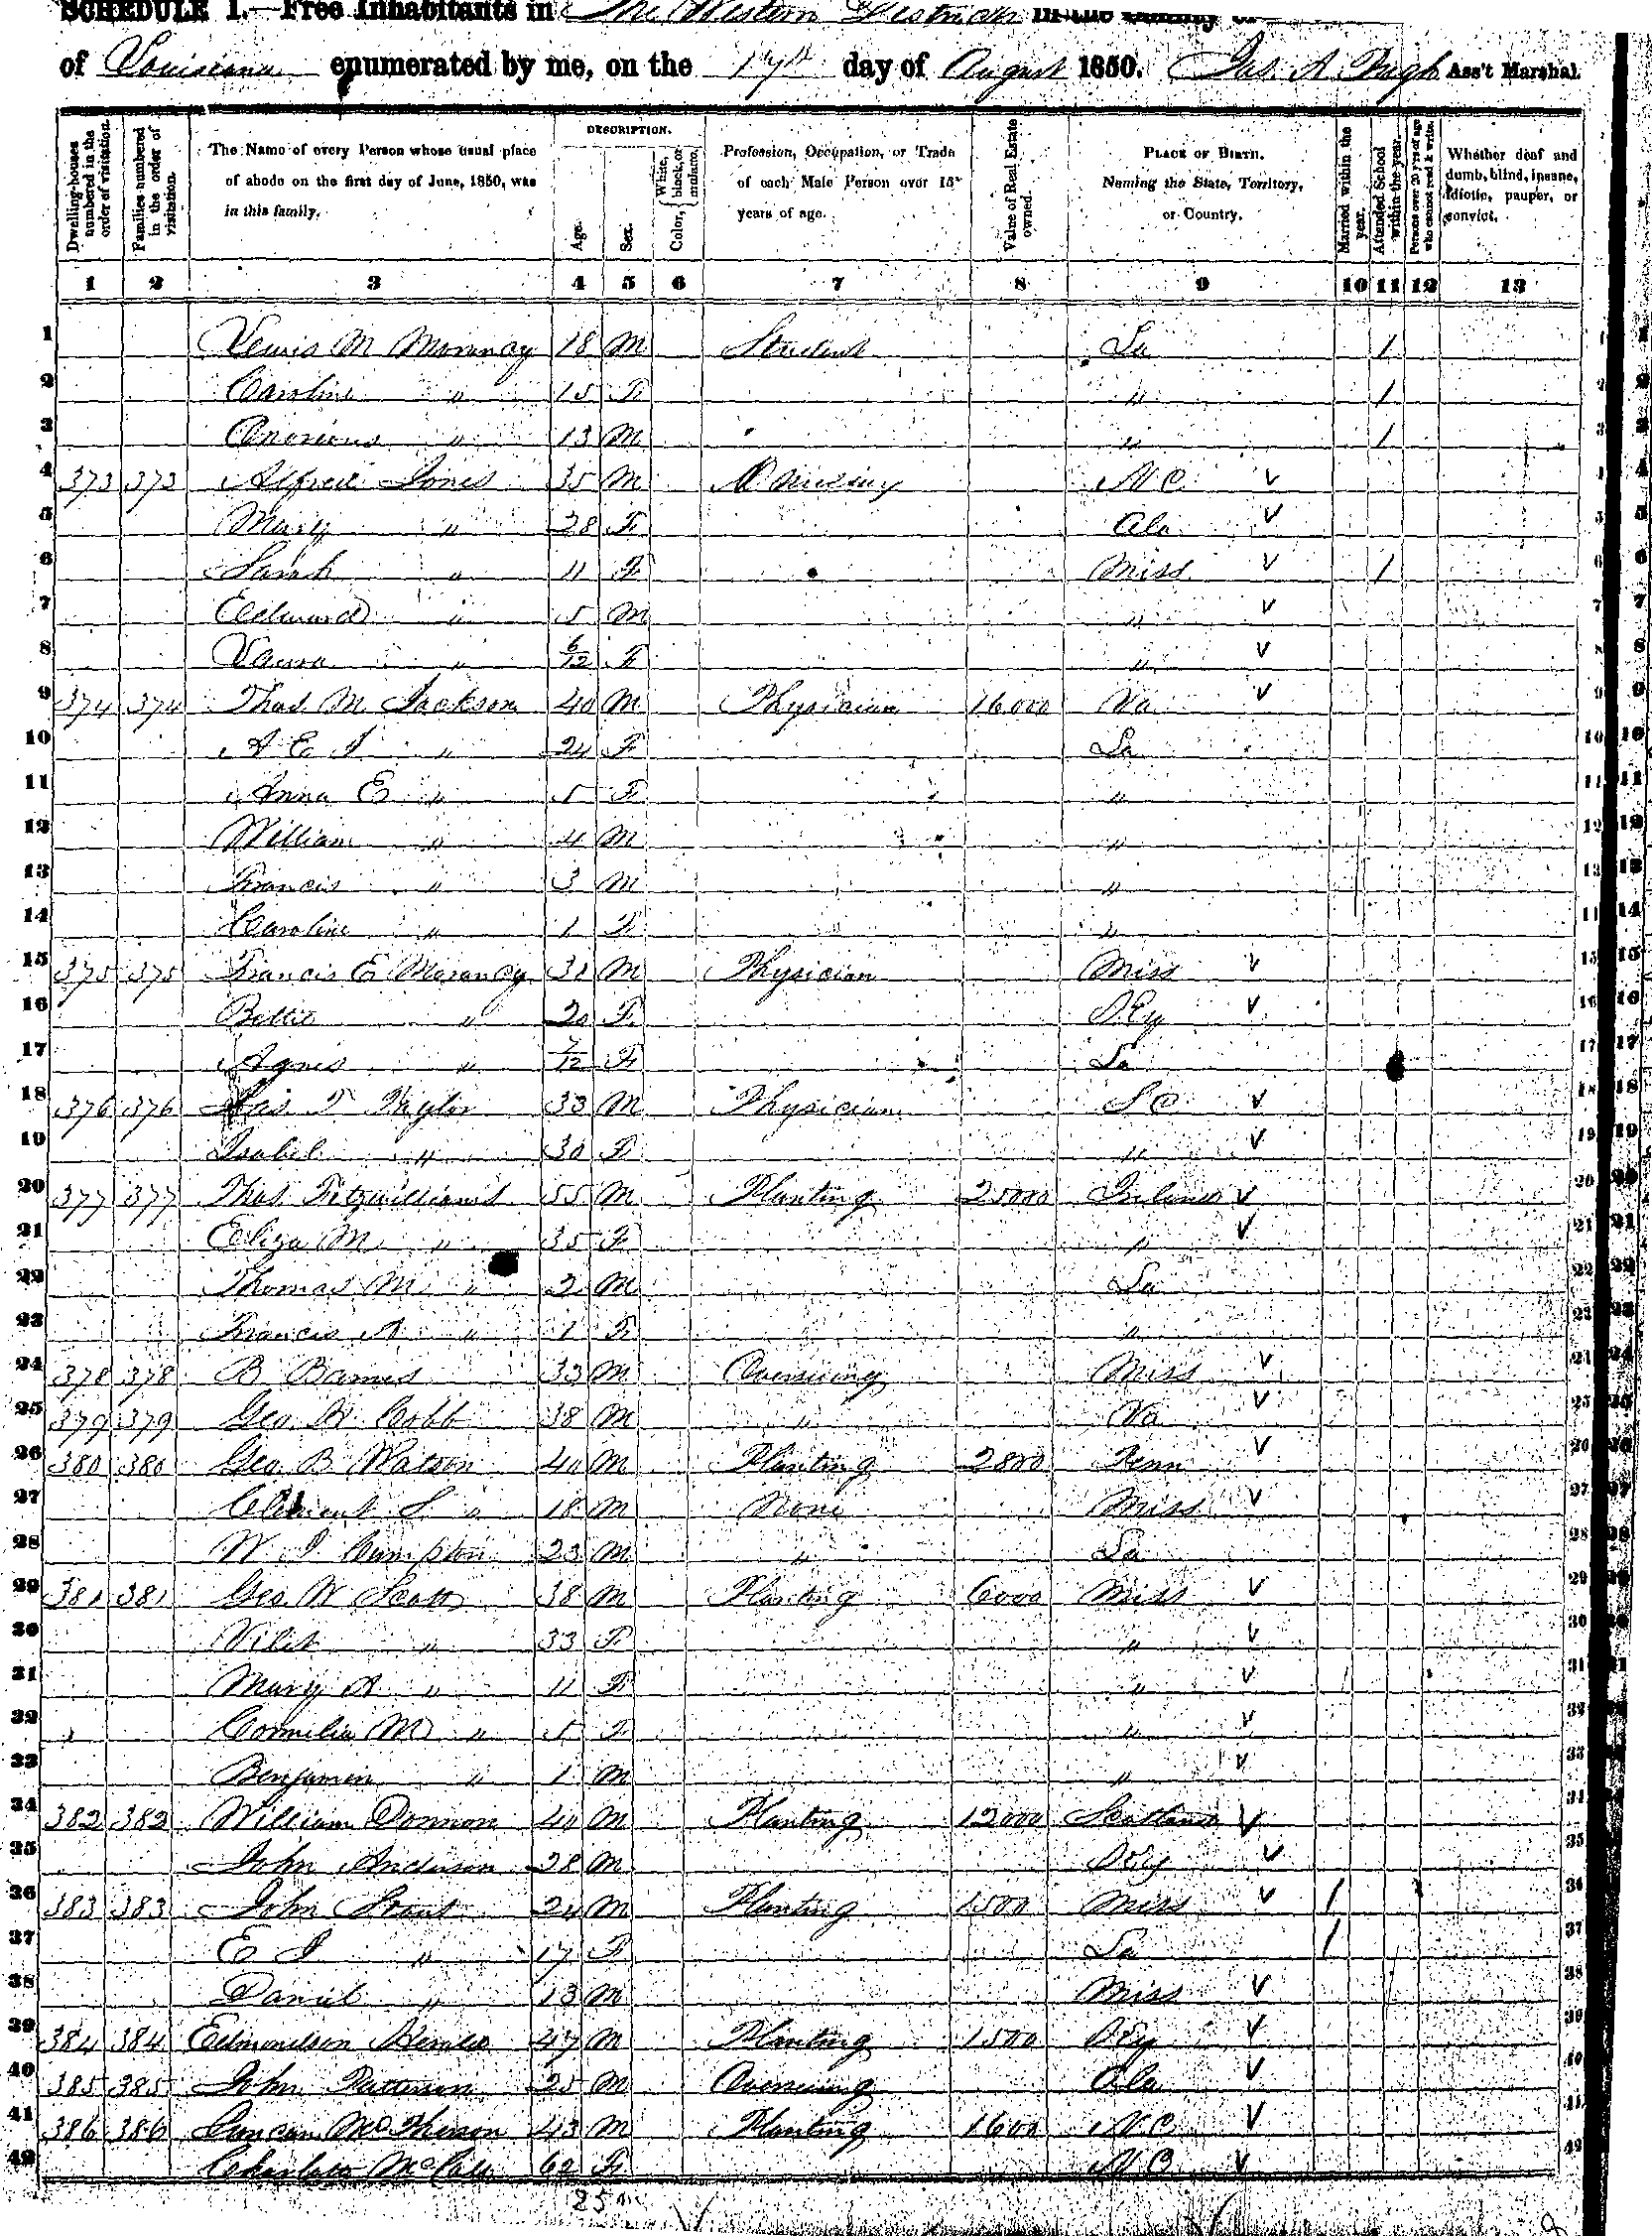 SCHEDULE I.—Free Inhabitants in The Western District in the County of
of Louisiana enumerated by me, on the 17th day of August 1850. Jas. A. Pugh Ass't Marshal.
Dwelling-houses numbered in the order of visitation.
Families numbered in the order of visitation.
The Name of every Person whose usual place of abode on the first day of June, 1850, was in this family.
DESCRIPTION.
Age.
Sex.
Color, White, black, or mulatto.
Profession, Occupation, or Trade of each Male Person over 15 years of age.
Value of Real Estate owned.
PLACE OF BIRTH. Naming the State, Territory, or Country.
Married within the year.
Attended School within the year.
Persons over 20 y'rs of age who cannot read & write.
Whether deaf and dumb, blind, insane, idiotic, pauper, or convict.
1 2 3 4 5 6 7 8 9 10 11 12 13
1 Lewis M Morancy 18 M Student La 1
2 Caroline " 15 F " 1
3 13 M " 1
4 373 373 Alfred Jones 35 M N C
5 Mary " 28 F Ala
6 Sarah " 11 F Miss 1
7 Edward " 5 M "
8 Laura " 6/12 F "
9 374 374 Thos. M Jackson 40 M Physician 16000 Va
10 A E J " 24 F La
11 Anna E " 5 F "
12 William " 4 M "
13 Francis " 3 M "
14 Caroline " 1 F "
15 375 375 Francis E Morancy 31 M Physician Miss
16 Bettie " 20 F Ky
17 Agnes " 7/12 F La
18 376 376 Jas T 33 M Physician S C
19 Isabel " 30 F "
20 377 377 Thos. Fitzwilliams 55 M Planting 25000 Ireland
21 Eliza M " 35 F "
22 Thomas M " 2 M La
23 Francis A " 1 F "
24 378 378 B Barnes 33 M Overseeing Miss
25 379 379 Geo. W. Cobb 38 M " Va
26 380 380 Geo B Watson 40 M Planting 2800 Tenn
27 Clement S " 18 M None Miss
28 W. J. Compton 23 M " La
29 381 381 Geo W Scott 38 M Planting 6000 Miss
30 " 33 F "
31 Mary A " 11 F "
32 Cornelia M " 5 F "
33 Benjamin " 1 M "
34 382 382 William Donnon 40 M Planting 12000 Scotland
35 John Anderson 28 M Ky
36 383 383 John 24 M Planting 1500 Miss 1
37 E J " 17 F La 1
38 Daniel " 13 M Miss
39 384 384 Edmondson 47 M Planting 1500 Ky
40 385 385 John Patterson 25 M Overseeing Ala
41 386 386 Duncan McPherson 43 M Planting 1600 N C
42 Charlotte McCall 62 F N C
25 m